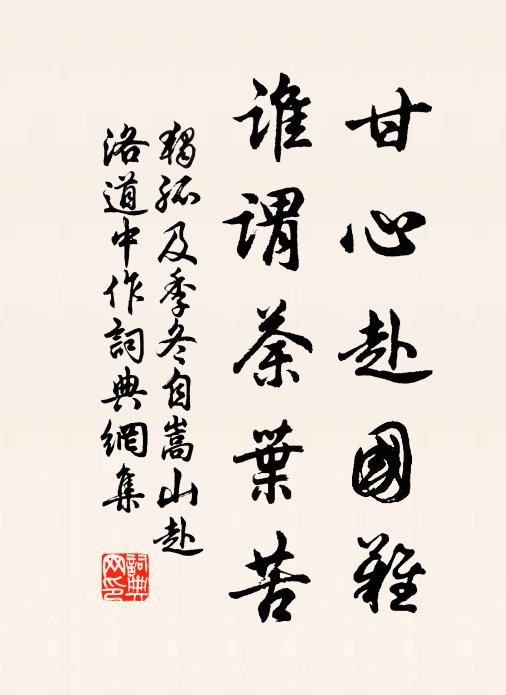 甘心赴國難
誰謂荼葉苦
獨孤及季冬自嵩山赴
洛道中作詞典網集
詞典
网印